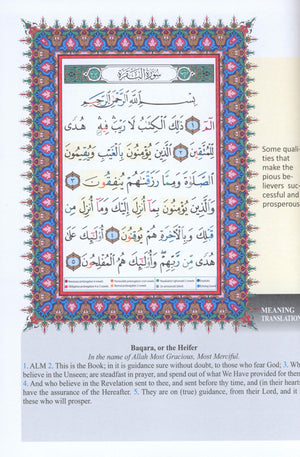 سُورَةُ البَقَرَةِ
بِسْمِ اللَّهِ الرَّحْمَٰنِ الرَّحِيمِ
الٓمٓ ١ ذَٰلِكَ الْكِتَٰبُ لَا رَيْبَ فِيهِ هُدًى
لِّلْمُتَّقِينَ ٢ الَّذِينَ يُؤْمِنُونَ بِالْغَيْبِ وَيُقِيمُونَ
الصَّلَوٰةَ وَمِمَّا رَزَقْنَٰهُمْ يُنفِقُونَ ٣
وَالَّذِينَ يُؤْمِنُونَ بِمَا أُنزِلَ إِلَيْكَ وَمَا أُنزِلَ مِن
قَبْلِكَ وَبِالْءَاخِرَةِ هُمْ يُوقِنُونَ ٤ أُولَٰئِكَ عَلَىٰ
هُدًى مِّن رَّبِّهِمْ وَأُولَٰئِكَ هُمُ الْمُفْلِحُونَ ٥
Some quali-
ties that
make the
pious be-
lievers suc-
cessful and
prosperous
MEANING
TRANSLATION
Baqara, or the Heifer
In the name of Allah Most Gracious, Most Merciful.
1. ALM 2. This is the Book; in it is guidance sure without doubt, to those who fear God; 3. Wh
believe in the Unseen; are steadfast in prayer, and spend out of what We Have provided for them
4. And who believe in the Revelation sent to thee, and sent before thy time, and (in their hearts
have the assurance of the Hereafter. 5. They are on (true) guidance, from their Lord, and it i
these who will prosper.